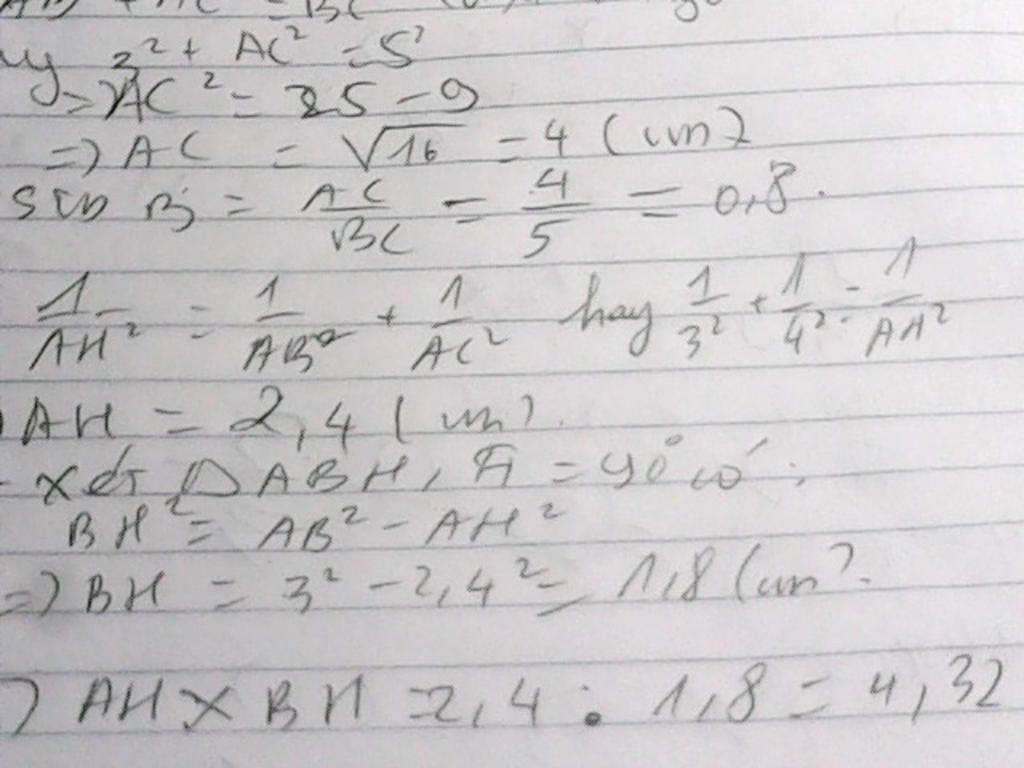 3² + AC² = 5²
=> AC² = 25 - 9
=> AC = √16 = 4 (cm)
sin B = AC/BC = 4/5 = 0,8.
1/AH² = 1/AB² + 1/AC² hay 1/3² + 1/4² = 1/AH²
AH = 2,4 (cm).
- xét △ABH, Ĥ = 90° có:
BH² = AB² - AH²
=> BH = 3² - 2,4² = 1,8 (cm).
) AH x BH = 2,4 . 1,8 = 4,32